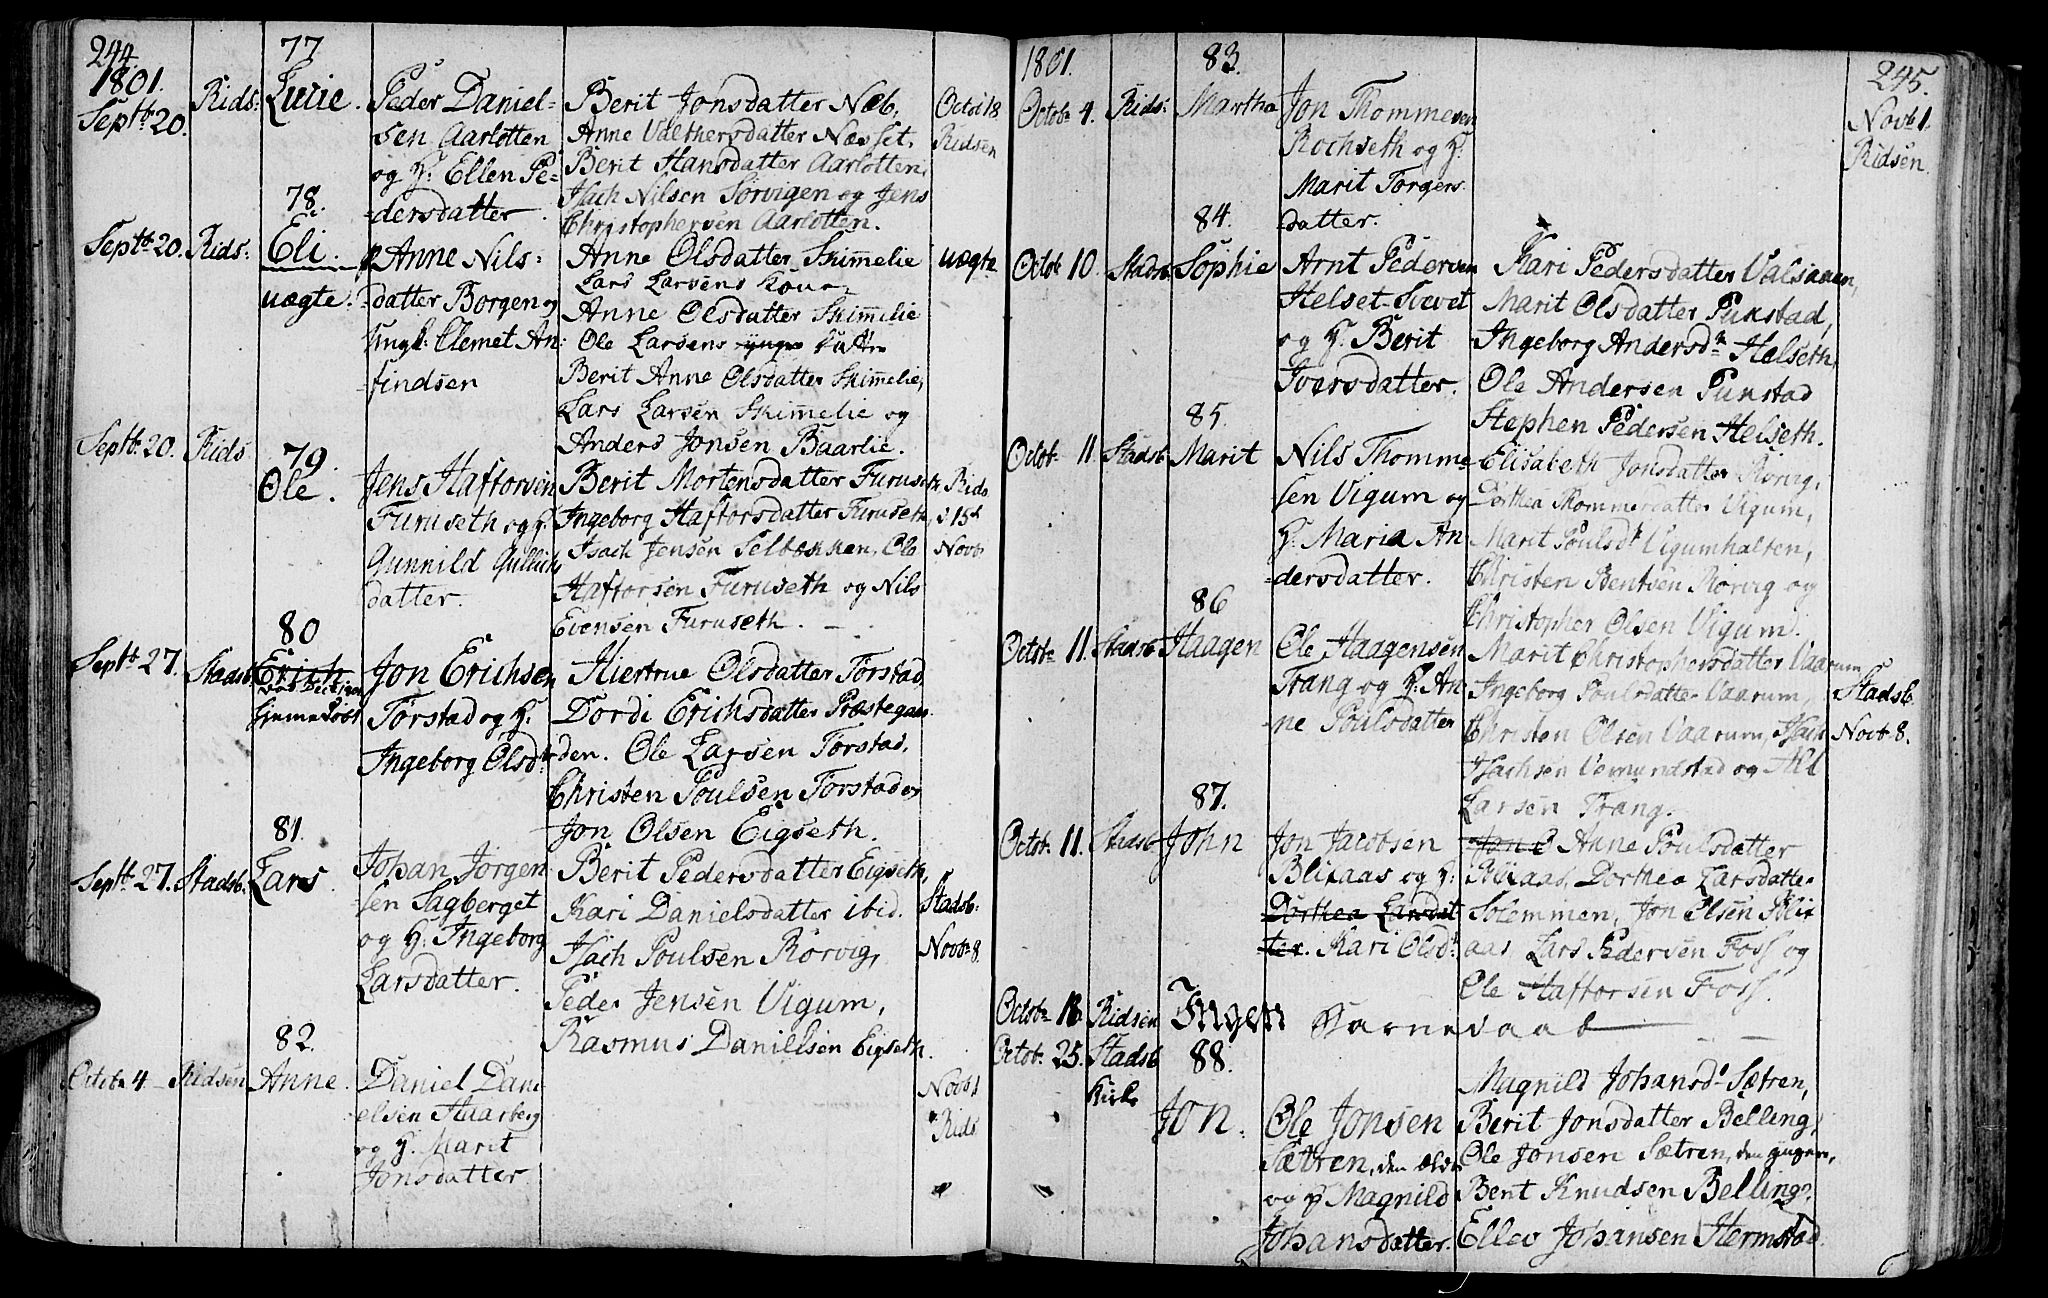 244.
1801.
77
Septb. 20.
Rids:
Lucie.
Peder Daniel-
sen Aarlotten
og H. Ellen Pe-
dersdatter
Berit Jonsdatter Næb,
Anne Valthersdatter Næsset,
Berit Hansdatter Aarlotten,
Isach Nilsen Sorvigen og Jens
Christophersen Aarlotten.
Octb 18
Ridsen
78.
Septb. 20.
Rids:
Eli.
uægte.
Anne Nils-
datter Borgen og
Ungk: Clemet An-
findsen
Anne Olsdatter Skimelie
Lars Larsens Kone
Anne Olsdatter Skimelie
Ole Larsens
Berit Anne Olsdatter Skimelie,
Lars Larsen Skimelie og
Anders Jonsen Baarlie.
uægte
79.
Septb. 20
Rids
Ole.
Jens Haftorsen
Furuseth og H.
Gunnild Gullichs
datter.
Berit Mortensdatter Furuseth
Ingeborg Haftorsdatter Furuseth,
Isach Jensen Selbækken, Ole
Haftorsen Furuseth og Nils
Evensen Furuseth.
Rids
d 15de
Novb
80
Septb. 27.
Stadsb
Erich
hjemedøbt
Jon Erichsen
Torstad og H.
Ingeborg Olsdr
Hiertrue Olsdatter Torstad
Dordi Erichsdatter Præstegaar
den. Ole Larsen Torstad,
Christen Poulsen Torstad og
Jon Olsen Eigseth.
81.
Septb. 27.
Stadsb.
Lars
Johan Jorgen
sen Sagberget
og H. Ingeborg
Larsdatter.
Berit Pedersdatter Eigseth,
Kari Danielsdatter ibid.
Isach Poulsen Rorvig,
Peder Jensen Vigum,
Rasmus Danielsen Eigseth.
Stadsb:
Novb. 8.
82.
Octob. 4
Ridsen
Anne.
Daniel Dani
elsen Haarberg
og H. Marit
Jonsdatter
Novb 1
Rids
1801.
83.
245.
Octob. 4.
Rids:
Martha
Jon Thommesen
Rochseth og H.
Marit Torgers
datter.
Novb 1.
Ridsen.
84.
Octob. 10.
Stadsb
Sophie
Arnt Pedersen
Helset Svevet
og H. Berit
Iversdatter.
Kari Pedersdatter Valsaaen,
Marit Olsdatter Punstad,
Ingeborg Andersdr Helseth,
Ole Andersen Punstad
Stephen Pedersen Helseth.
85.
Octob. 11.
Stadsb
Marit
Nils Thomme-
sen Vigum og
H. Maria An
dersdatter.
Elisabeth Jonsdatter Rorvig,
Dorthea Thommesdatter Vigum,
Marit Poulsdr Vigumhalten,
Christen Bentsen Rorvig og
Christopher Olsen Vigum.
86
Octob. 11.
Stadsb
Haagen
Ole Haagensen
Trang og H. An
ne Poulsdatter
Marit Christophersdatter Vaarum
Ingeborg Poulsdatter Vaarum,
Christen Olsen Vaarum, Isach
Isachsen Vemundstad og
Larsen Trang.
Stadsb.
Novb. 8.
87.
Octob. 11.
Stadsb
John
Jon Jacobsen
Blixaas og H.
Dorthea Larsdat
ter. Kari Olsdr
Anne Poulsdatter
Blixaas, Dorthea Larsdatter
Solemmen, Jon Olsen Blix
aas, Lars Pedersen Foss og
Ole Haftorsen Foss.
Octob. 18.
Ridsen
Ingen Barnedaab
Octob. 25.
Stadsb
Kirke
88.
Jon.
Ole Jonsen
Sætren, den ældre
og H Magnild
Johansdatter.
Magnild Johansdr Sætren,
Berit Jonsdatter Belling,
Ole Jonsen Sætren, den yngre,
Bent Knudsen Belling,
Ellev Johansen Hermstad.